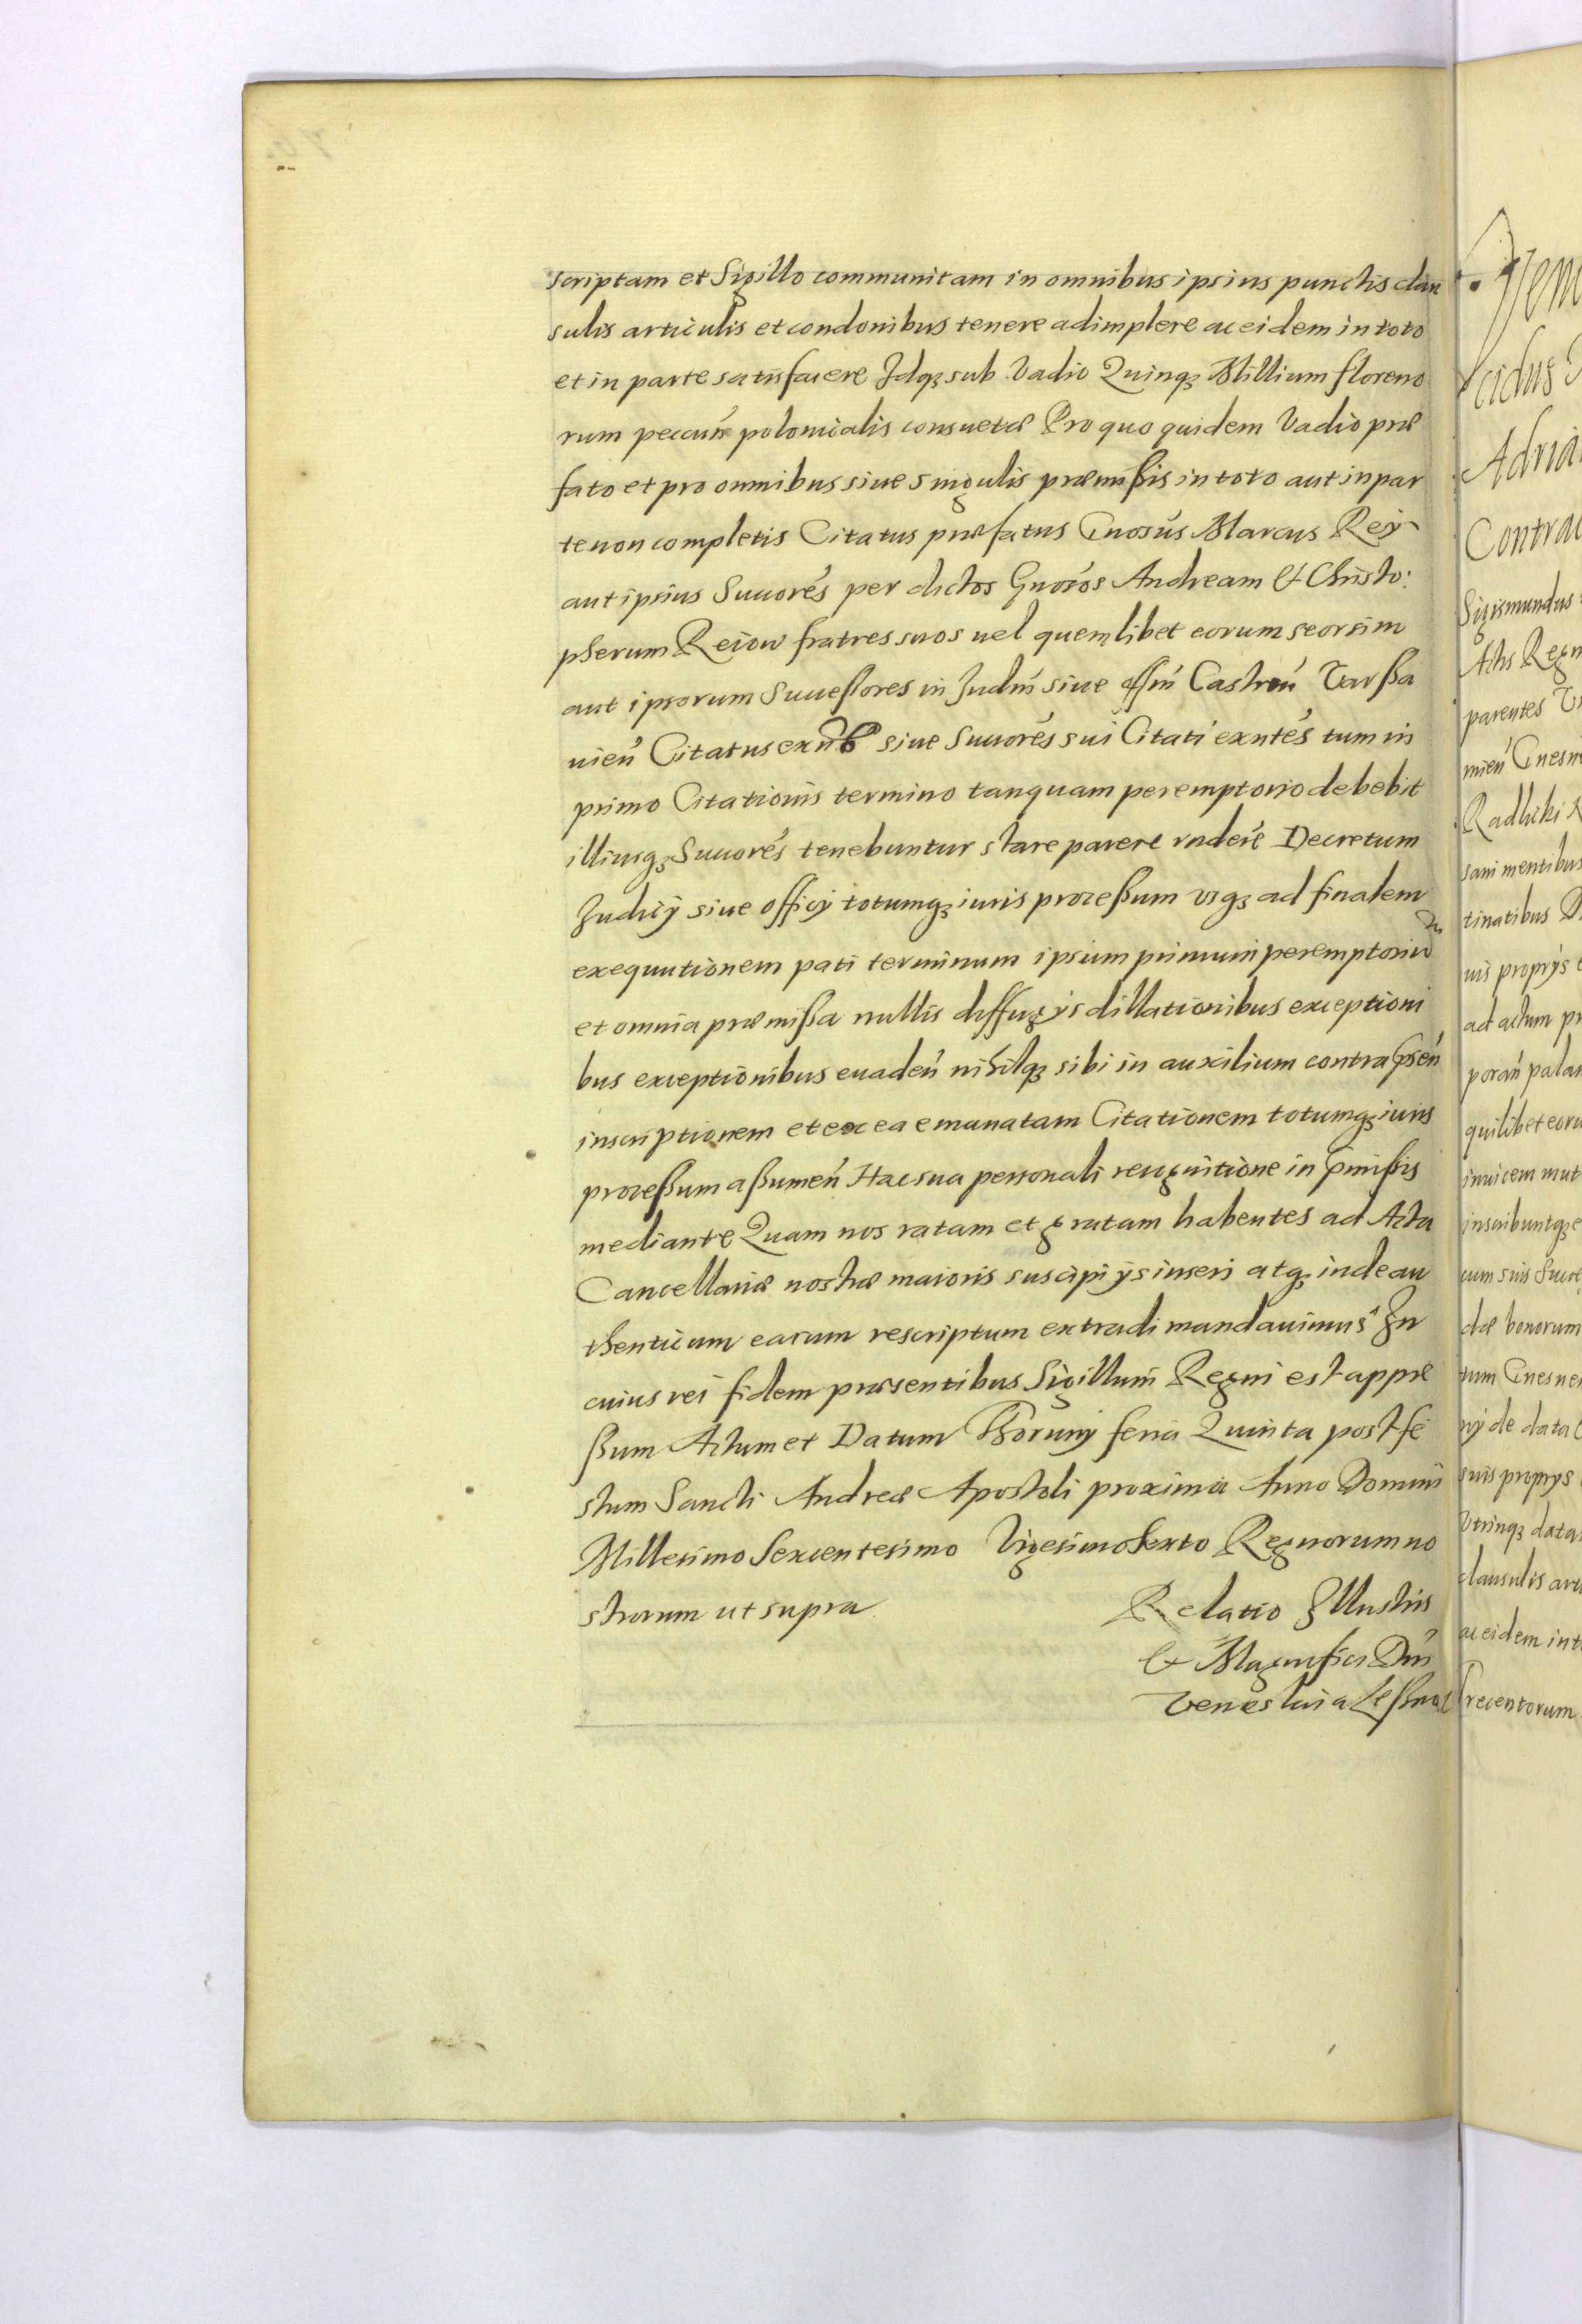 scriptam et Sigillo communitam in omnibus ipsius punctis clau
sulis articulis et condonibus tenere adimplere ac eidem in toto
et in parte satisfacere Idqꝫ sub Vadio Quinqꝫ Millium floreno
rum pecun polonicalis consuetæ Pro quo quidem Vadio præ
fato et pro omnibus siue singulis præmißis in toto aut in par
te non completis Citatus præfatus Gnosus Marcus Reÿ
aut ipsius Succores per dictos Gnosos Andream et Christo:
pherum Reiow fratres suos uel quemlibet eorum seorsim
aut ipsorum Succeßores in Judm siue offm Castren Varßa
uien Citatus siue Succores sui Citati exntes tum in
primo Citationis termino tanquam peremptorio debebit
illiusqꝫ Succores tenebuntur stare parere rndere Decretum
Judicÿ siue officÿ totumqꝫ iuris proceßum vsqꝫ ad finalem
exequutionem pati terminum ipsum primum peremptorium
et omnia præmißa nullis diffugÿs dillationibus exceptioni
bus exceptionibus euaden nihilqꝫ sibi in auxilium contra pnsen
inscriptionem et ex ea emanatam Citationem totumqꝫ iuris
proceßum aßumen Hac sua personali recognitione in pmißis
mediante Quam nos ratam et gratam habentes ad Acta
Cancellariæ nostræ maioris suscipi ÿs inseri atqꝫ inde au
thenticum earum rescriptum extradi mandauimus In
cuius rei fidem præsentibus Sigillum Regni est appræ
ßum Actum et Datum Thorunÿ feria Quinta post fe
stum Sancti Andreæ Apostoli proxima Anno Domini
Millesimo Sexcentesimo Vigesimo Sexto Regnorum no
strorum ut supra
Relatio Illustris
et Magnifici Dni
Venceslai a Leßno
Adria
Contrac
Sigismundus
Actis Regn
parentes
mien Gnesn
Radlicki
sani mentibus
tinatibus
uis proprÿs
ad actum pr
poran palam
quilibet eoru
inuicem mut
inscribuntqꝫ e
cum suis Succe
dæ bonorum
tum Gnesne
nÿ de data
suis proprÿs
Vtrinqꝫ data
clausulis arti
ac eidem int
trecentorum